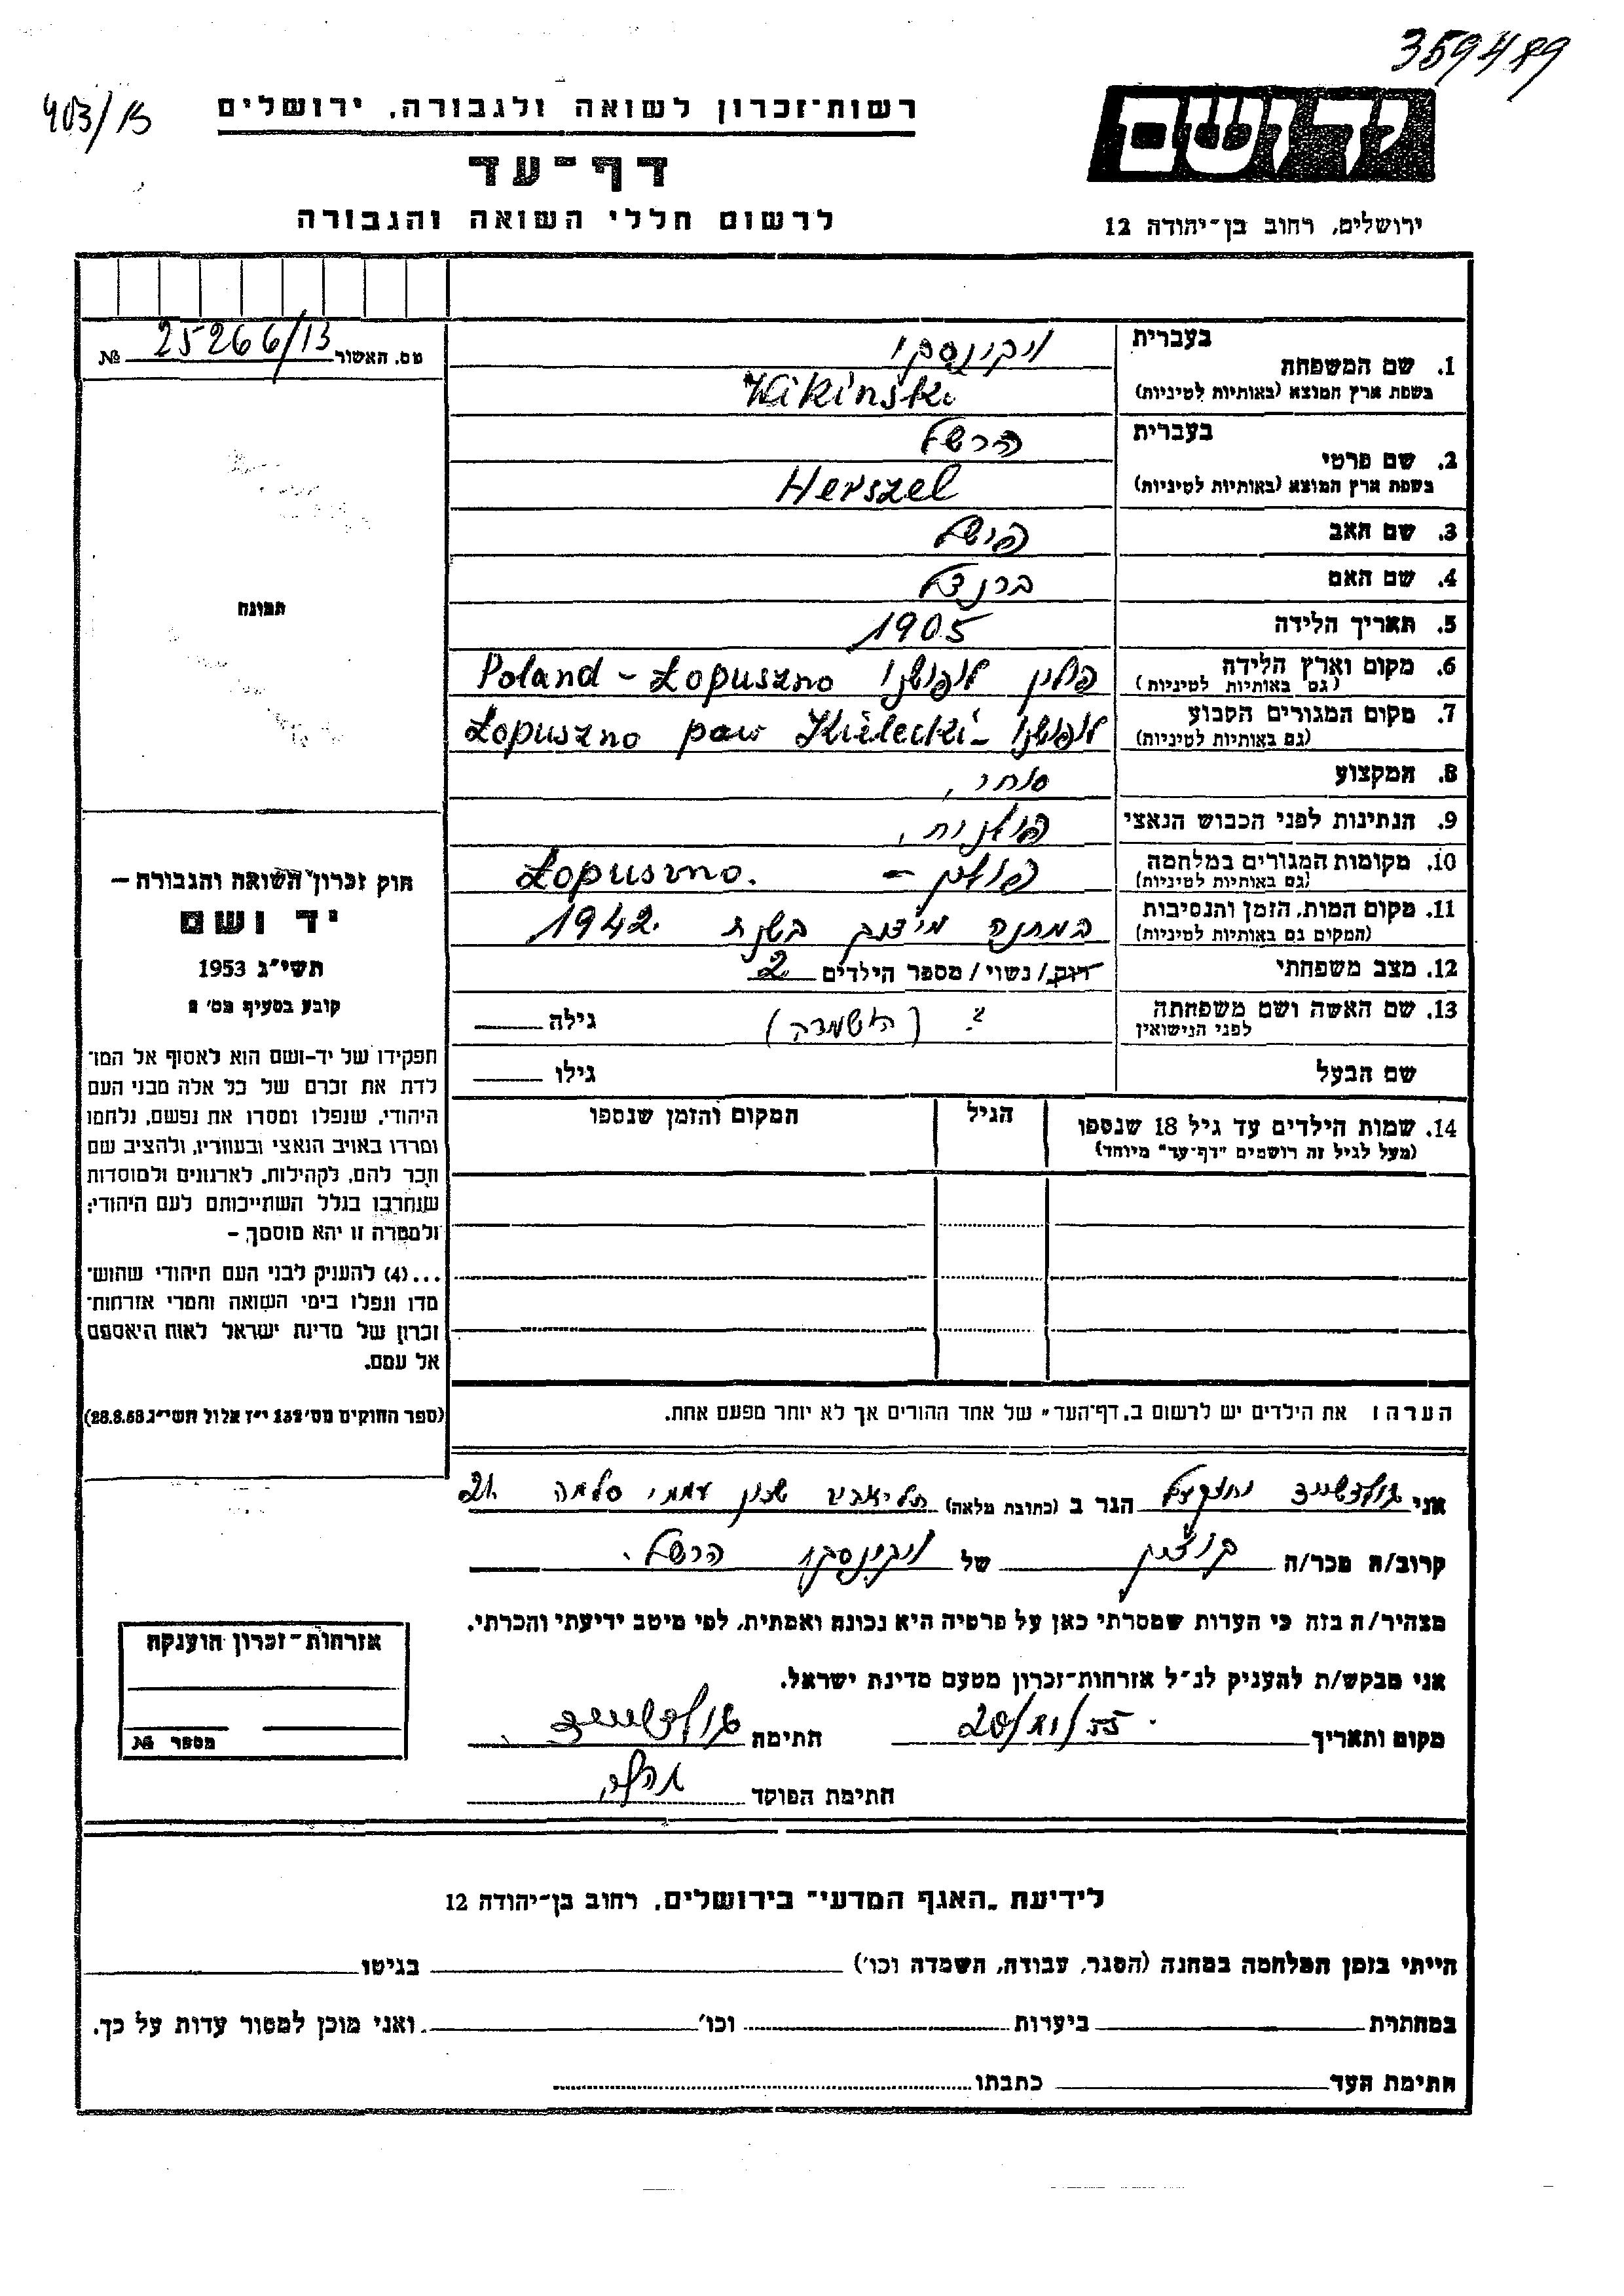 359489
403/13
רשות־זכרון לשואה ולגבורה, ירושלים
יד ושם
דף־עד
לרשום חללי השואה והגבורה
ירושלים, רחוב בן־יהודה 12
מס. האשור № 25266/13
1. שם המשפחה בעברית ויקינסקי
בשפת ארץ המוצא (באותיות לטיניות) Wikinski
2. שם פרטי בעברית הרשל
בשפת ארץ המוצא (באותיות לטיניות) Herszel
3. שם האב
4. שם האם
5. תאריך הלידה 1905
6. מקום וארץ הלידה פולין לופושנו Poland - Łopuszno
(גם באותיות לטיניות)
7. מקום המגורים הקבוע לופושנו Łopuszno paw Kielecki
(גם באותיות לטיניות)
8. המקצוע סוחר
9. הנתינות לפני הכבוש הנאצי פולנית
10. מקומות המגורים במלחמה פולין - Łopuszno.
(גם באותיות לטיניות)
11. מקום המות, הזמן והנסיבות במחנה בשנת 1942.
(המקום גם באותיות לטיניות)
12. מצב משפחתי רווק/ נשוי/ מספר הילדים 2
13. שם האשה ושם משפחתה ? (הושמדה) גילה
לפני הנישואין
שם הבעל גילו
14. שמות הילדים עד גיל 18 שנספו הגיל המקום והזמן שנספו
(מעל לגיל זה רושמים "דף־עד" מיוחד)
הערה: את הילדים יש לרשום ב„דף־העד" של אחד ההורים אך לא יותר מפעם אחת.
תמונה
חוק זכרון השואה והגבורה –
יד ושם
תשי"ג 1953
קובע בסעיף מס'
תפקידו של יד-ושם הוא לאסוף אל המו־
לדת את זכרם של כל אלה מבני העם
היהודי, שנפלו ומסרו את נפשם, נלחמו
ומרדו באויב הנאצי ובעוזריו, ולהציב שם
וזכר להם, לקהילות, לארגונים ולמוסדות
שנחרבו בגלל השתייכותם לעם היהודי;
ולמטרה זו יהא מוסמך –
...(4) להעניק לבני העם היהודי שהוש־
מדו ונפלו בימי השואה והמרי אזרחות־
זכרון של מדינת ישראל לאות היאספם
אל עמם.
(ספר החוקים מס' 132 י"ז אלול תשי"ג 28.8.53)
אני גולדשטיין הגר ב (כתובת מלאה) תל־אביב שכון עממי סלמה 21
קרוב/ה מכר/ה של ויקינסקי הרשל.
מצהיר/ה בזה כי העדות שמסרתי כאן על פרטיה היא נכונה ואמתית, לפי מיטב ידיעתי והכרתי.
אני מבקש/ת להעניק לנ"ל אזרחות־זכרון מטעם מדינת ישראל.
מקום ותאריך 20/VI/55 חתימה גולדשטיין
חתימת הפוקד
אזרחות־זכרון הוענקה
מספר №
לידיעת „האגף המדעי" בירושלים, רחוב בן־יהודה 12
הייתי בזמן המלחמה במחנה (הסגר, עבודה, השמדה וכו') בגיטו
במחתרת ביערות וכו' ואני מוכן למסור עדות על כך.
חתימת העד כתבתו